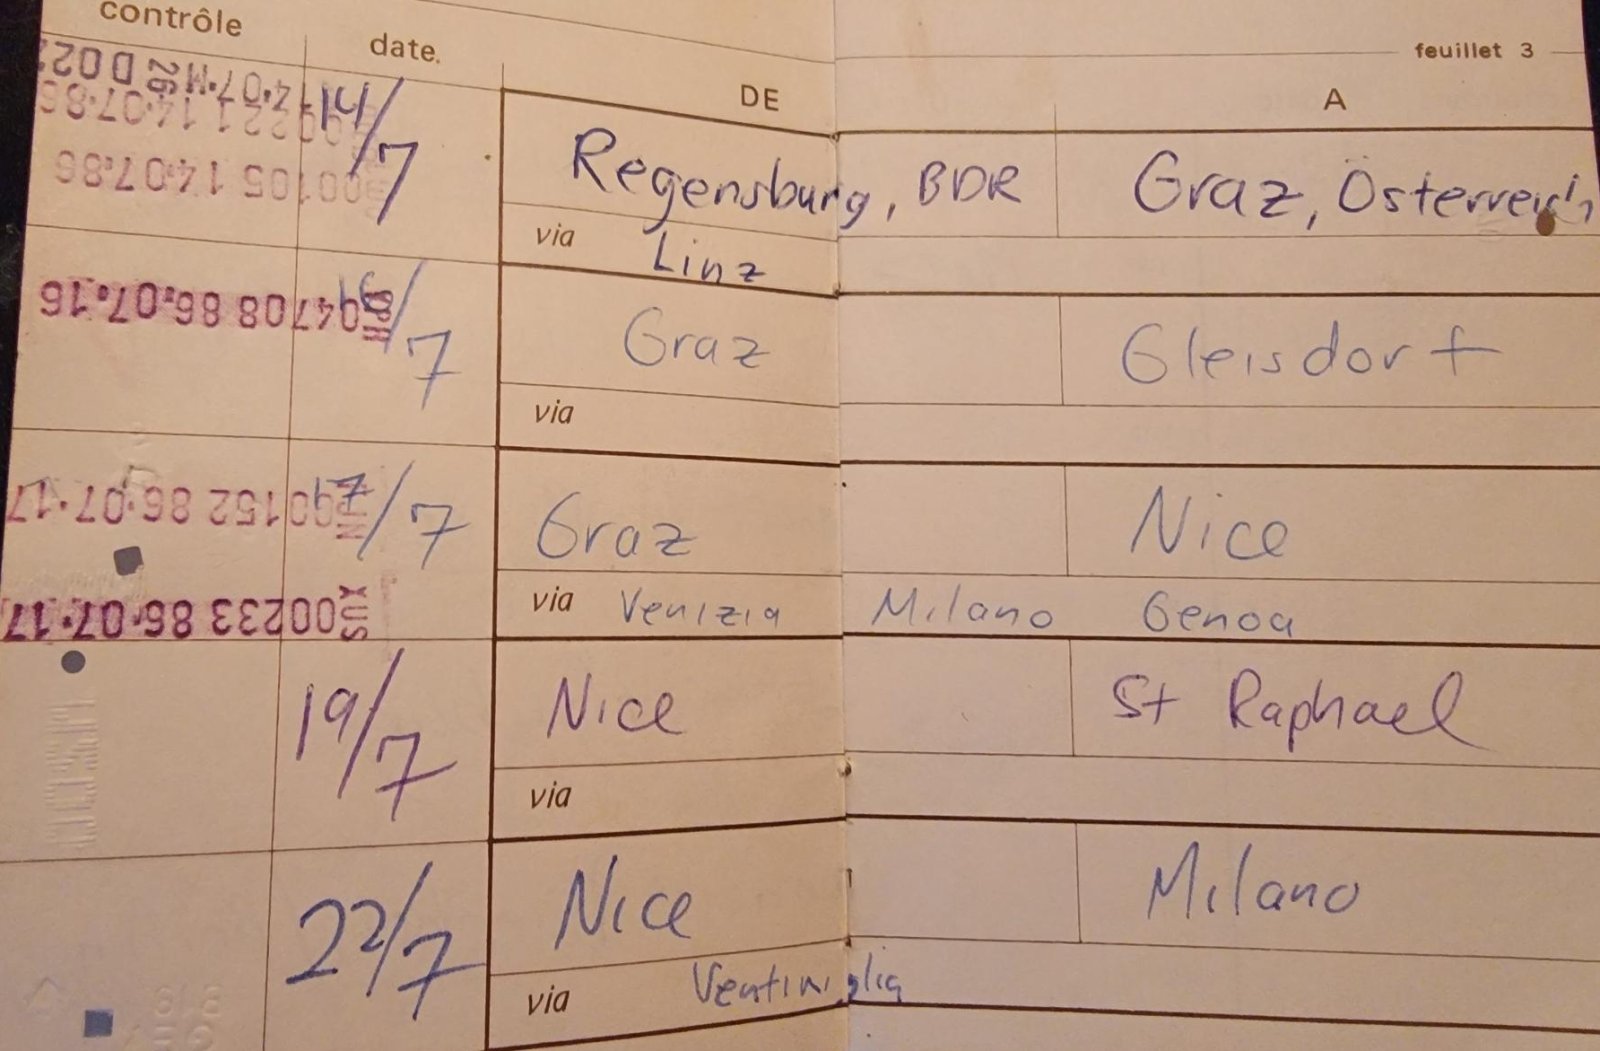 contrôle date. feuillet 3
DE A
14/7 Regensburg, BDR Graz, Österreich
via Linz
16/7 Graz Gleisdorf
via
17/7 Graz Nice
via Venizia Milano Genoa
19/7 Nice St Raphael
via
22/7 Nice Milano
via Ventimiglia
00221 14·07·86
00105 14·07·86
04708 86.07.16
00152 86·07·17
XUS 00233 86·07·17